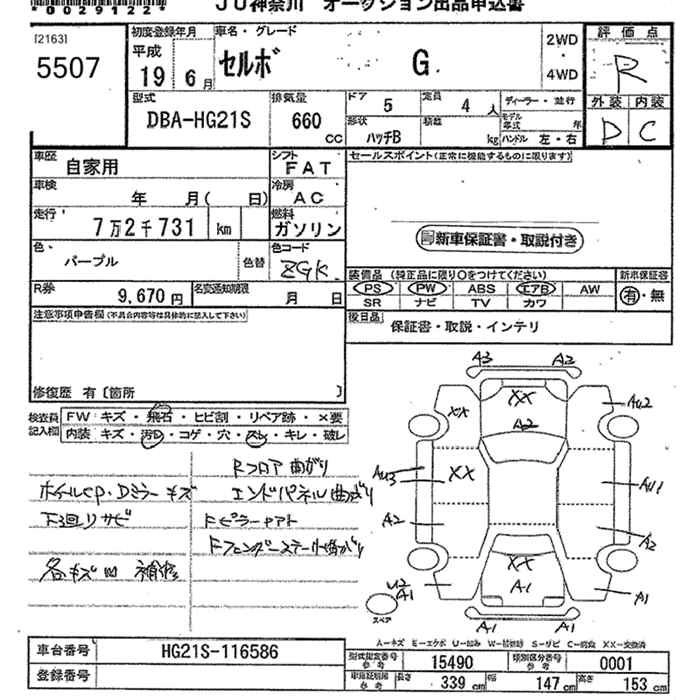 *0029122*
JU神奈川 オークション出品申込書
[2163]
5507
初度登録年月
平成
19 6月
車名・グレード
セルボ G
2WD
・
4WD
評価点
R
外装 内装
D C
型式
DBA-HG21S
排気量
660
cc
ドア 5
定員 4 人
形状 ハッチB
積載 kg
ディーラー・並行
モデル年式 年
ハンドル 左・右
車歴 自家用
シフト FAT
車検 年 月( 日)
冷房 AC
走行 7万2千731 km
燃料 ガソリン
色 パープル
色替
色コード ZGK
R券 9,670円
名変通知期限 月 日
セールスポイント(正常に機能するものに限ります)
新車保証書・取説付き
装備品 (純正品に限り〇をつけてください)
新車保証書
PS PW ABS エアB AW
有・無
SR ナビ TV カワ
後日品 保証書・取説・インテリ
注意事項申告欄(不具合内容等は具体的に記入して下さい)
修復歴 有〔箇所 〕
検査員記入欄
FW キズ・飛石・ヒビ割・リペア跡・×要
内装 キズ・汚れ・コゲ・穴・スレ・キレ・破レ
Rフロア曲がり
ホイールCP・Dミラーキズ エンドパネル曲がり
下回りサビ
Fフェンダーステー曲がり
各キズ凹 補修
A3 A2
XX
XX
AU2
A2
AU3
XX
AU1
A2
A2
XX
A1
U2
A1
A1
スペア
A1 A1
A=キズ E=エクボ U=凹み W=補修跡 S=サビ C=腐食 XX=交換済
車台番号 HG21S-116586
登録番号
型式指定番号 参考 15490
類別区分番号 参考 0001
車庫証明用 参考
長さ 339 cm
幅 147 cm
高さ 153 cm